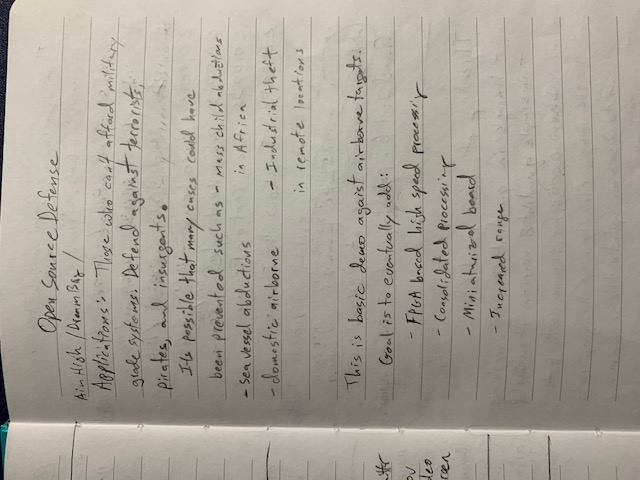 Open Source Defense
Aim High / Dream Big /
Applications: Those who can't afford military
grade systems. Defend against terrorists,
pirates, and insurgents.
Its possible that many cases could have
been prevented such as - mass child abductions
in Africa
- sea vessel abductions
- domestic airborne
- Industrial theft
in remote locations
This is basic demo agaist airborne targets.
Goal is to eventually add:
- FPGA based high speed processing
- Consolidated processing
- Miniaturized board
- Increased range